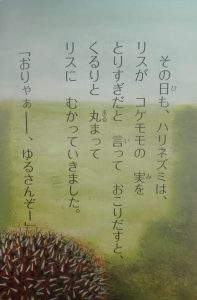 その日も、ハリネズミは、
リスが コケモモの 実を
とりすぎだと 言って おこりだすと、
くるりと 丸まって
リスに むかっていきました。
「おりゃあ――、ゆるさんぞー」